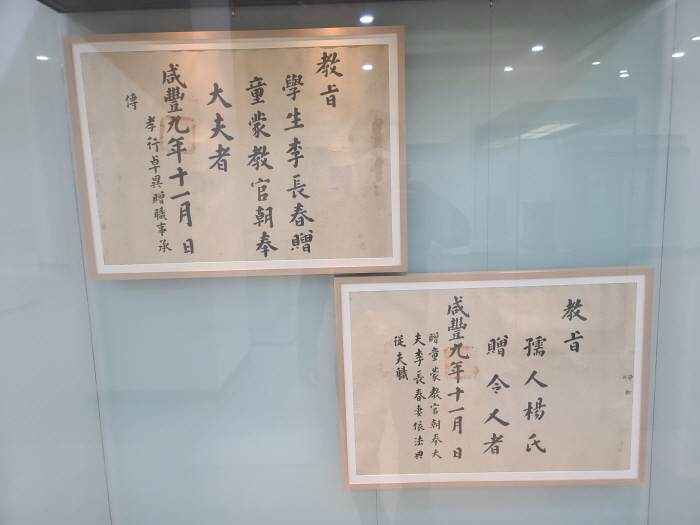 教旨
學生李長春贈
童蒙教官朝奉
大夫者
咸豐九年十一月 日
孝行卓異贈職事承
傳
教旨
孺人楊氏
贈令人者
咸豐九年十一月 日
贈童蒙教官朝奉大
夫李長春妻依法典
從夫職